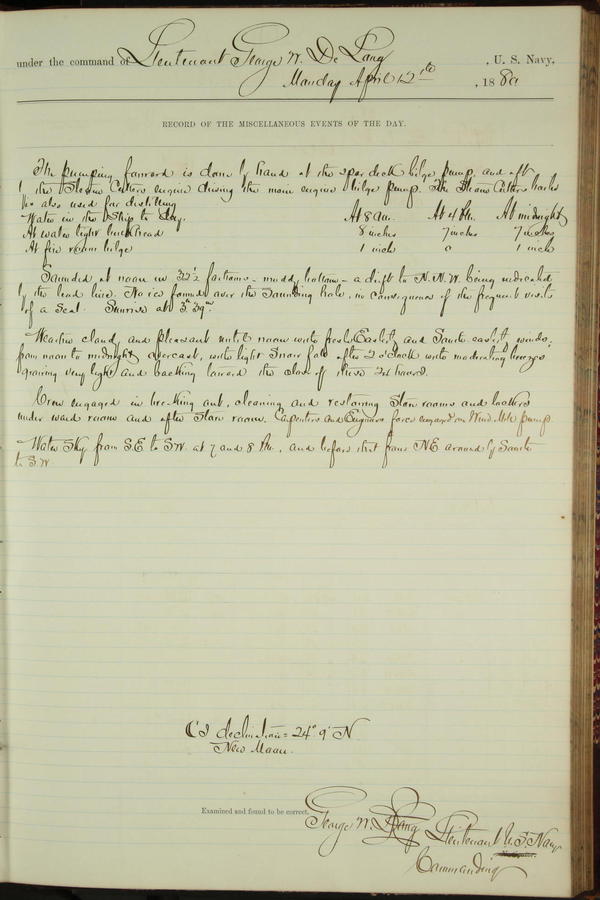 under the command of Lieutenant George W. De Long, U. S. Navy,
Monday April 12th, 1880
RECORD OF THE MISCELLANEOUS EVENTS OF THE DAY.
The pumping forward is done by hand at the spar deck bilge pump, and aft
by the Steam Cutters engine driving the main engine bilge pump. The Steam Cutters boiler
is also used for distilling
Water in the Ship to day. At 8 am. At 4 Pm. At midnight
At water tight bulkhead 8 inches 7 inches 7 inches
At fire room bilge 1 inch 0 1 inch
Sounded at noon in 32½ fathoms - muddy bottom - a drift to N.N.W. being indicated
by the lead line. No ice formed over the Sounding hole, in consequence of the frequent visits
of a Seal. Sunrise at 3h 39m
Weather cloudy and pleasant until noon with fresh Easterly and South easterly winds;
from noon to midnight overcast, with light Snow fall after 2 o'clock with moderating breezes
growing very light and backing toward the close of these 24 hours.
Crew engaged in breaking out, cleaning and restowing Store rooms and lockers
under ward room and after Store room. Carpenters and Engineers force engaged on Wind Mill pump.
Water Sky from S.E to S.W. at 7 and 8 Pm., and before that from NE around by South
to S.W
declination = 24° 9' N
New Moon.
Examined and found to be correct,
George W. De Long Lieutenant U.S. Navy
Commanding